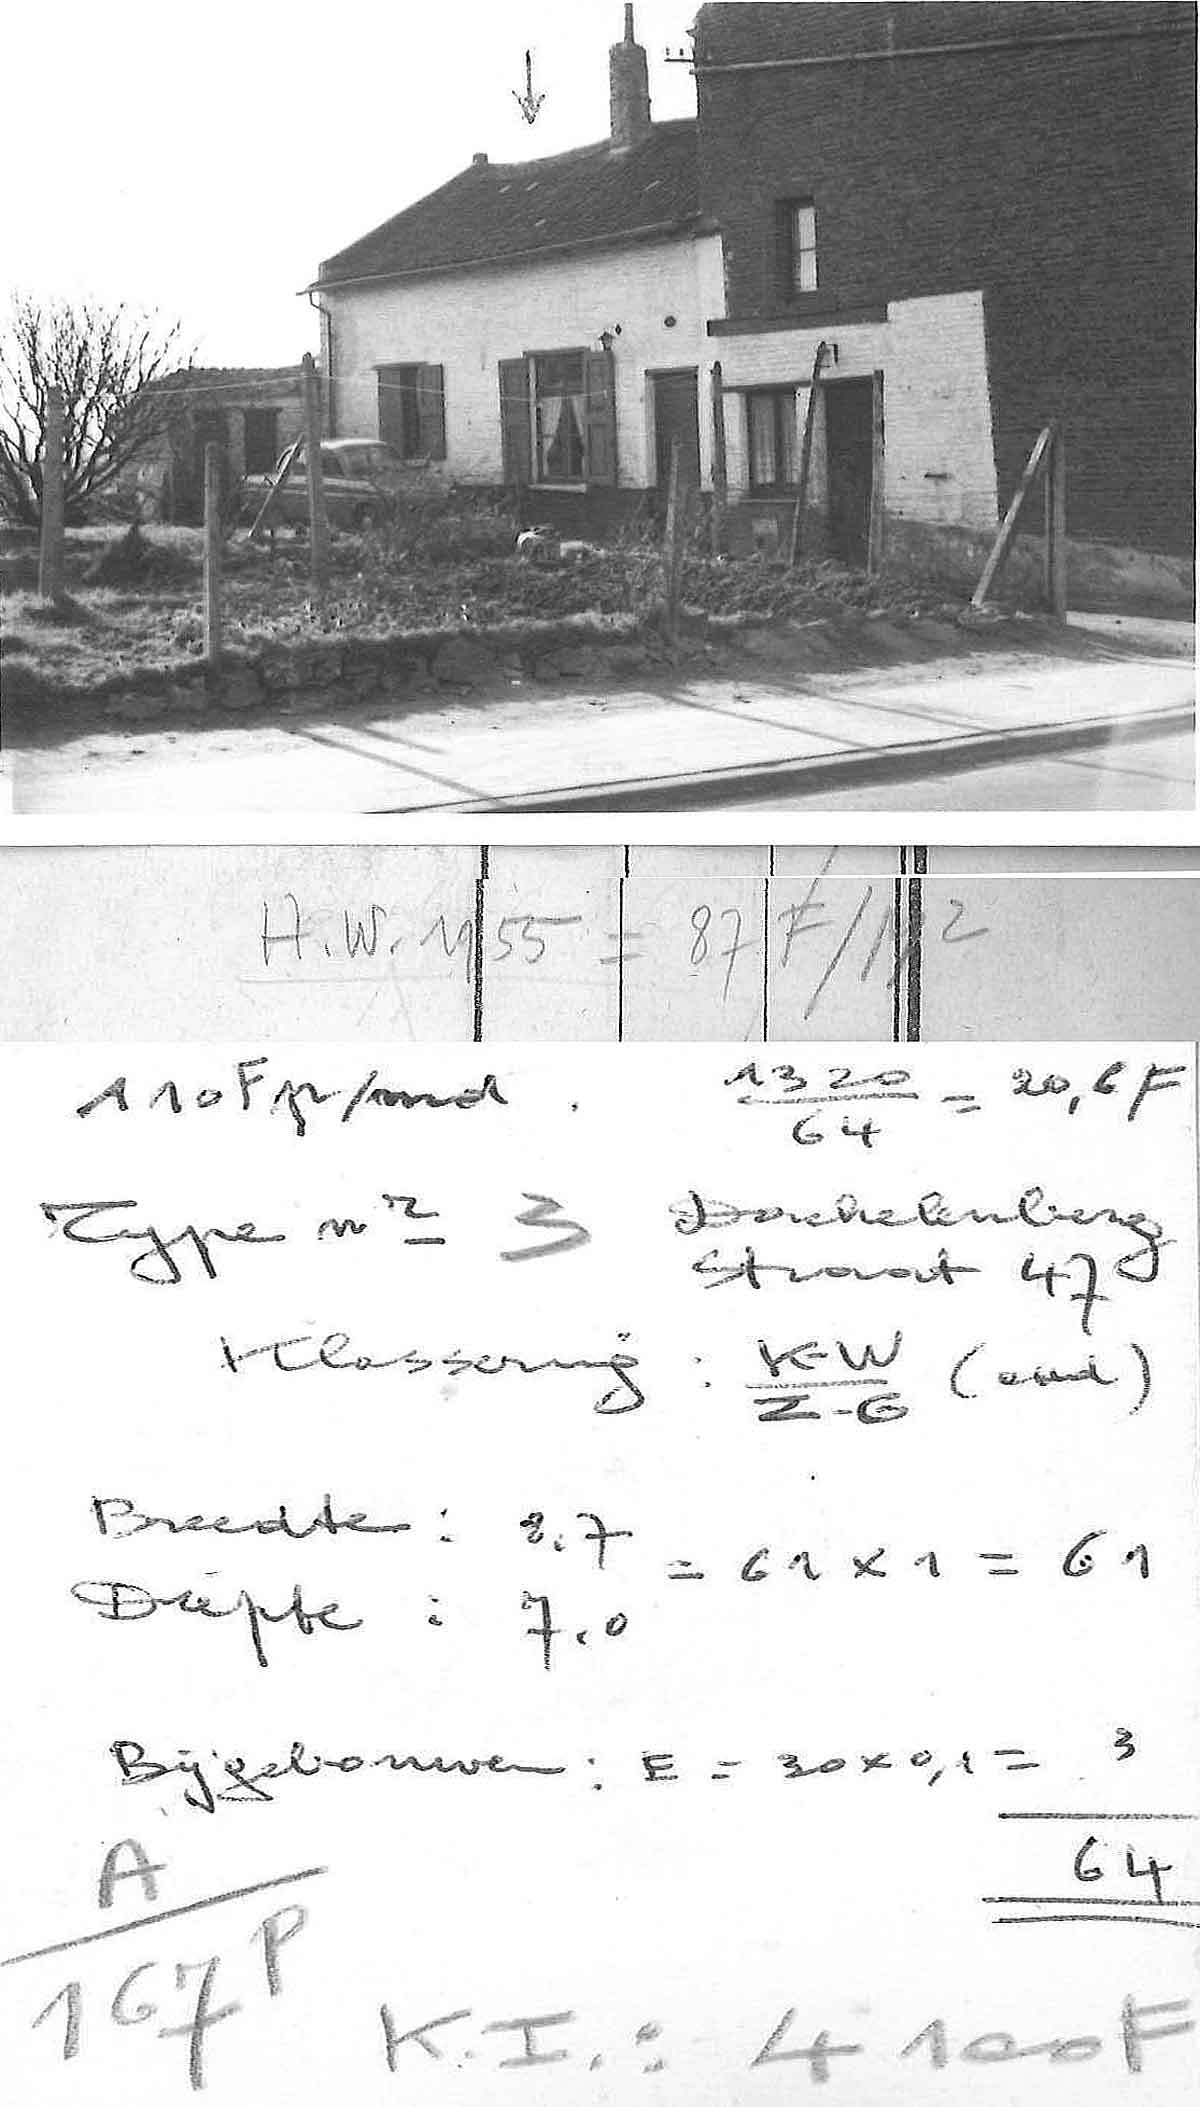 H.W. 1955 = 87 F/m²
110 F p/md. 1320/64 = 20,6 F
Type nr 3 Dachelenberg
straat 47
Klassering : K-W/Z-G (oud)
Breedte : 8.7
= 61 x 1 = 61
Diepte : 7.0
Bijgebouwen : E = 30 x 0,1 = 3
64
A/167P
K.I. : 4100F